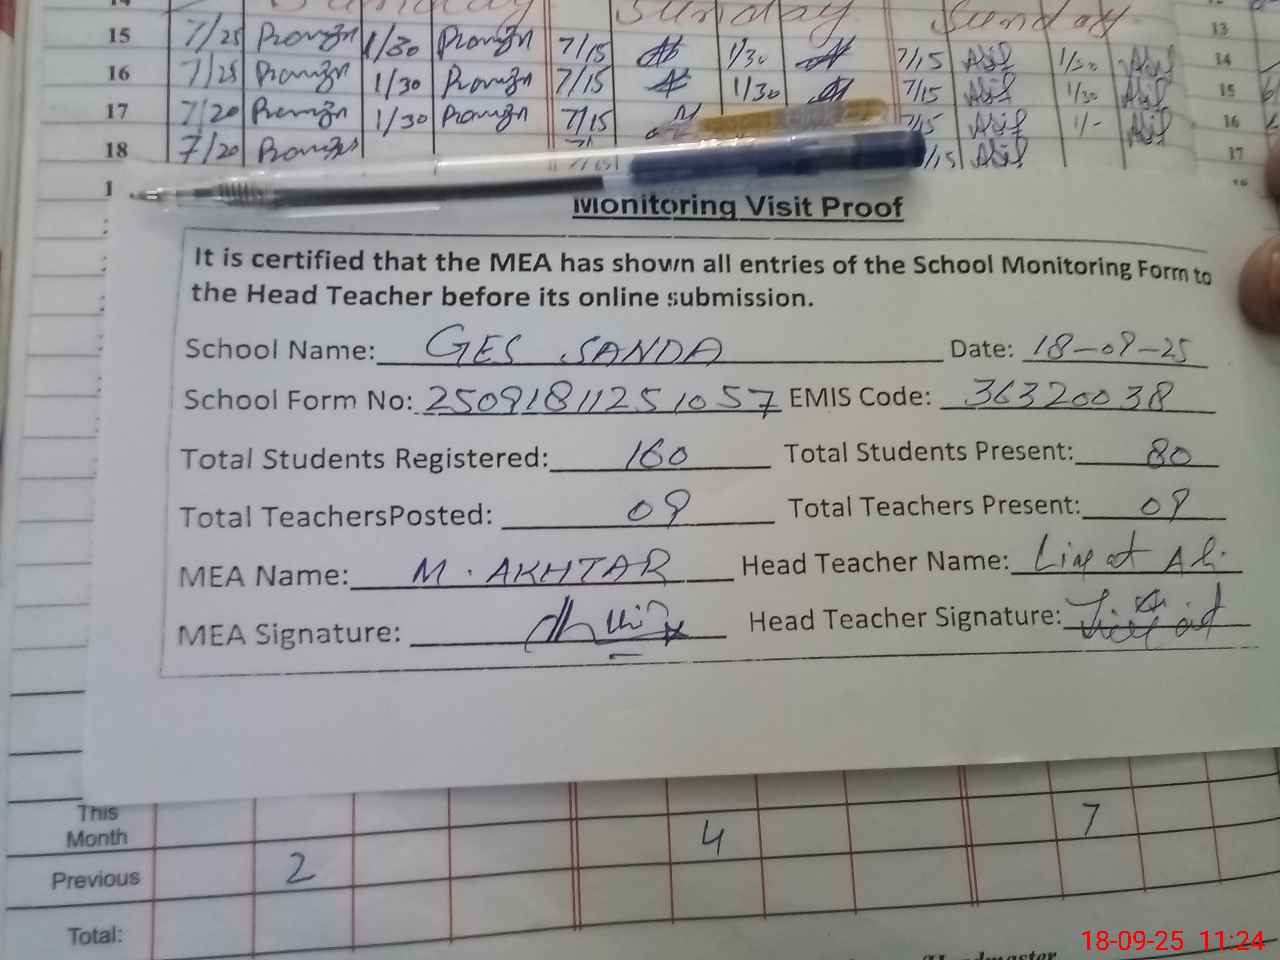 Sunday Sunday
15 7/25 1/30 7/15 1/30 7/15 Asif 1/30 Asif
16 7/25 1/30 7/15 1/30 7/15 Asif 1/30 Asif
17 7/20 1/30 7/15 7/15 Asif 1/- Asif
18 7/20 Asif
13
14
15
16
17
Monitoring Visit Proof
It is certified that the MEA has shown all entries of the School Monitoring Form to
the Head Teacher before its online submission.
School Name: GES SANDA Date: 18-09-25
School Form No: 25091811251057 EMIS Code: 36320038
Total Students Registered: 160 Total Students Present: 80
Total TeachersPosted: 09 Total Teachers Present: 09
MEA Name: M. AKHTAR Head Teacher Name: Liaqat Ali
MEA Signature: Head Teacher Signature:
This
Month 4 7
Previous 2
Total:
18-09-25 11:24